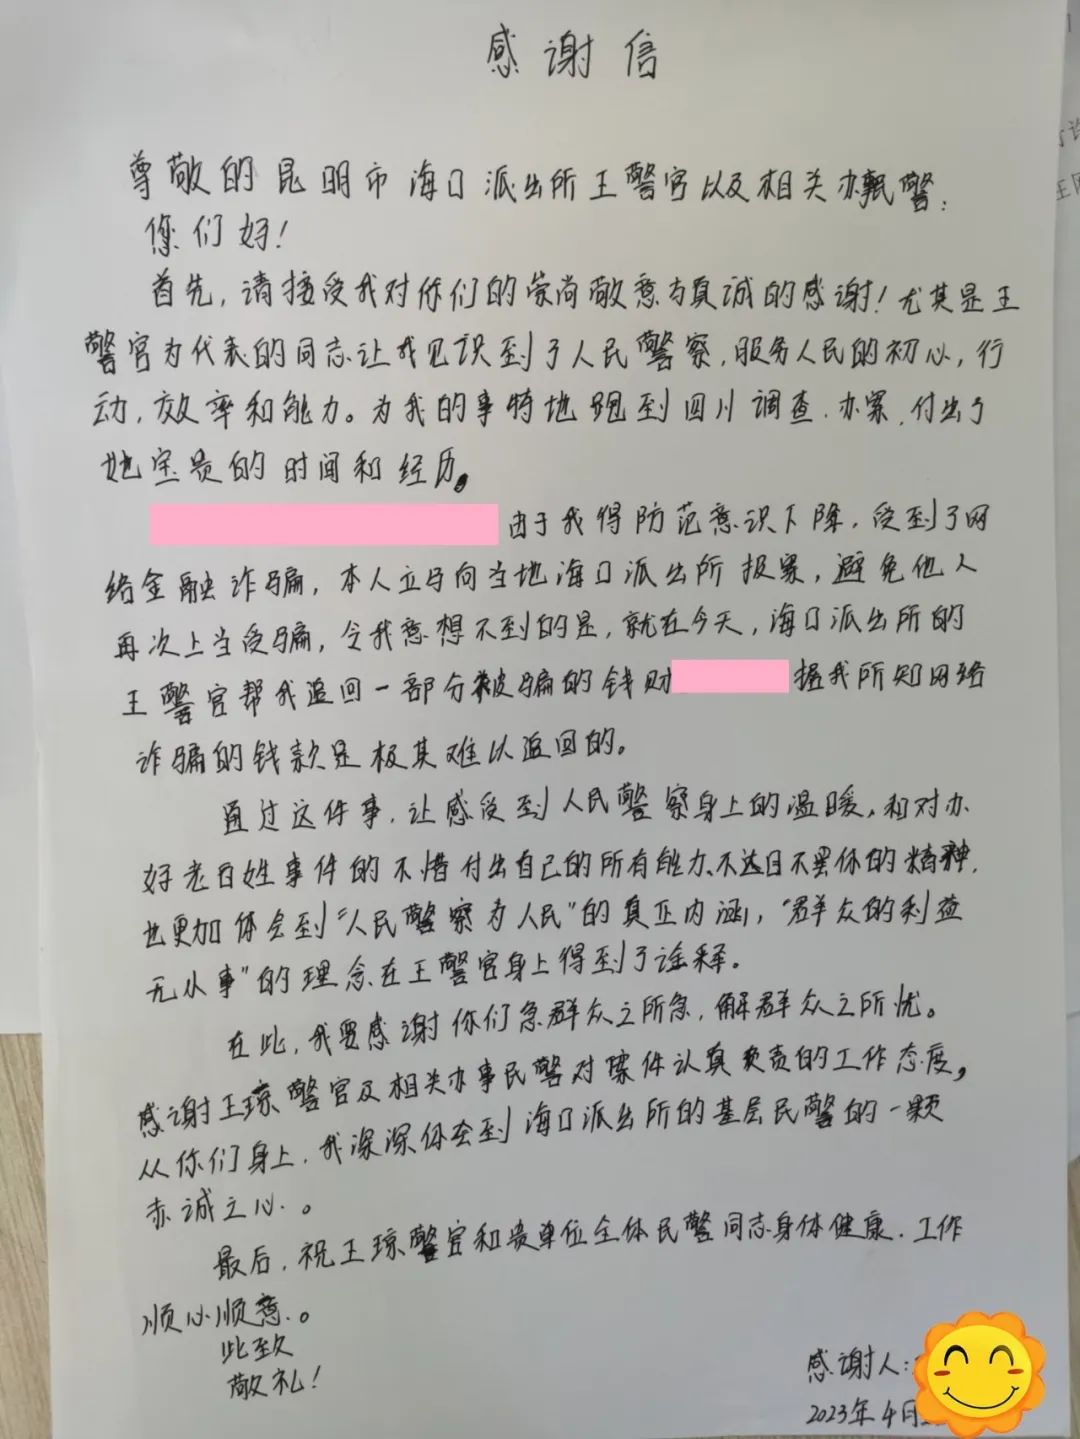 感谢信
尊敬的昆明市海口派出所王警官以及相关办民警：
您们好！
首先，请接受我对你们的崇尚敬意与真诚的感谢！尤其是王
警官为代表的同志让我见识到了人民警察，服务人民的初心，行
动，效率和能力。为我的事特地跑到四川调查.办案，付出了
她宝贵的时间和经历。
由于我得防范意识下降，受到了网
络金融诈骗，本人立马向当地海口派出所报案，避免他人
再次上当受骗，令我意想不到的是，就在今天，海口派出所的
王警官帮我追回一部分被骗的钱财 据我所知网络
诈骗的钱款是极其难以返回的。
通过这件事，让感受到人民警察身上的温暖，和对办
好老百姓事件的不惜付出自己的所有能力、不达目不罢休的精神，
也更加体会到“人民警察为人民”的真正内涵，“群众的利益
无小事”的理念在王警官身上得到了诠释。
在此，我要感谢你们急群众之所急，解群众之所忧。
感谢王琼警官及相关办事民警对案件认真负责的工作态度，
从你们身上，我深深体会到海口派出所的基层民警的一颗
赤诚之心.。
最后，祝王琼警官和贵单位全体民警同志身体健康.工作
顺心顺意.。
此致
敬礼！
感谢人：
2023年4月